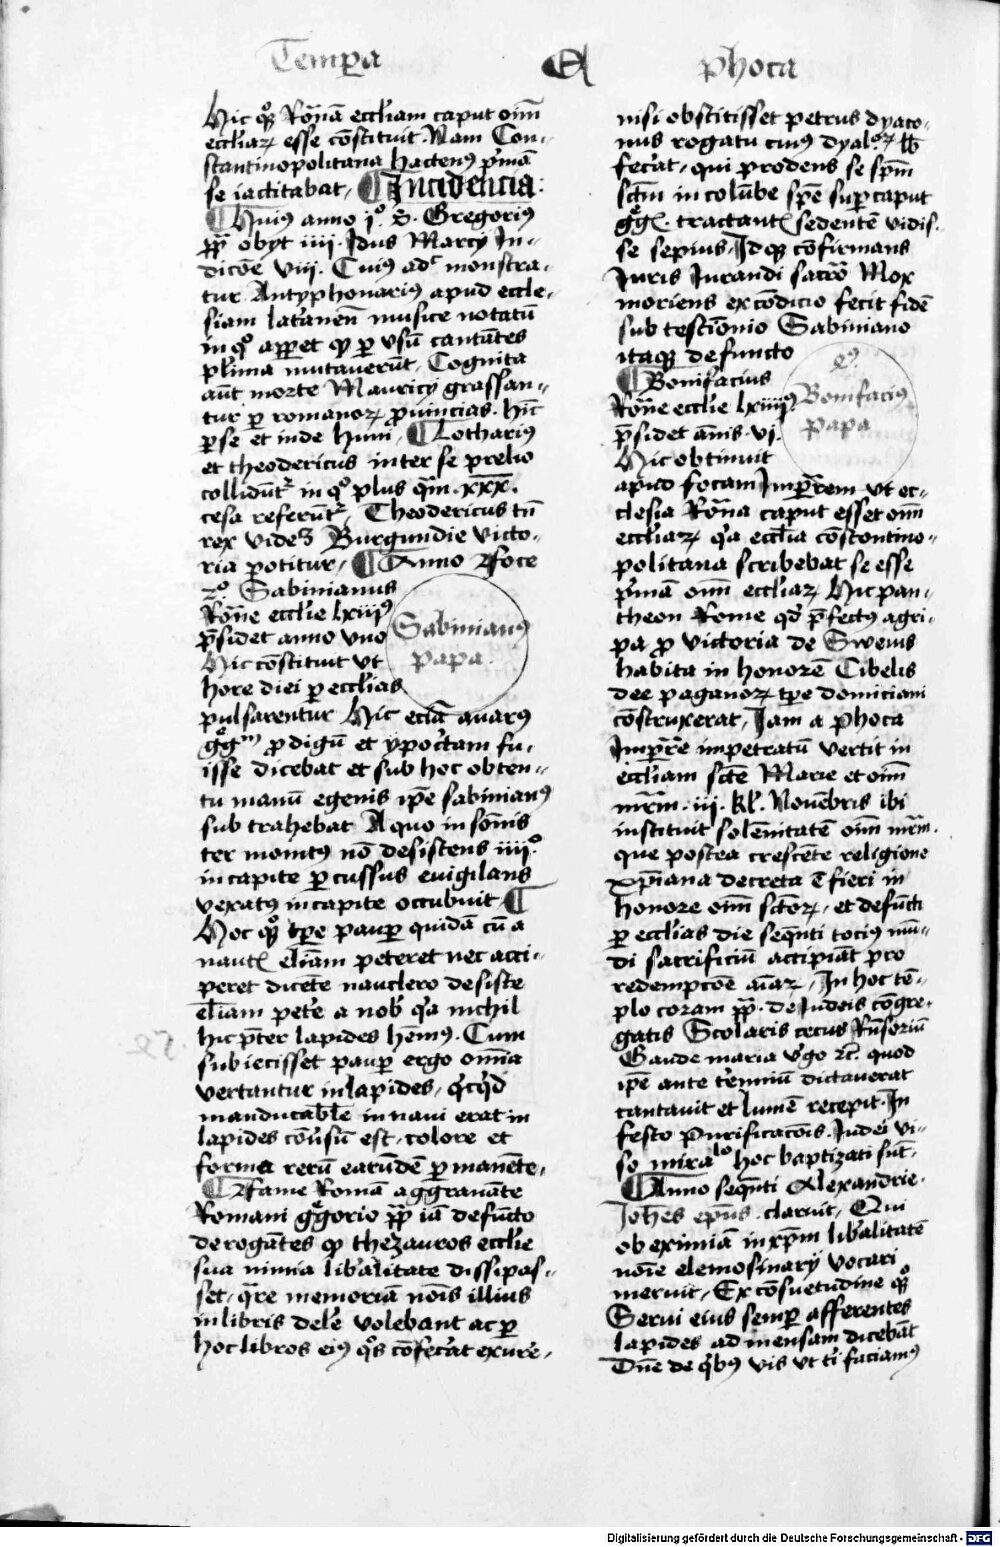 Tempora A phoca
Hic quoque Romanam ecclesiam caput omnium
ecclesiarum esse constituit. Nam Con-
stantinopolitana hactenus primam
se iactitabat, Incidencia:
Huius anno i° S. Gregorius
papa obyt iiii. Idus Marcij In-
dicione viii. Cuius adhuc monstra-
tur Antyphonarius apud eccle-
siam lateranensem musice notatum
in quo apparet quod per usum cantantes
plurima mutaverunt, Cognita
autem morte Mauricij grassan-
tur per romanorum provincias. hinc
perse et inde huni, Lotharius
et theodericus inter se prelio
collidunt̉ in quo plus quam .xxx.
cesa referunt̉, Theodericus tamen
rex videlicet Burgundie victo-
ria potitur, Anno Foce
2° Sabinianus
Romane ecclesie lxiii9
presidet anno uno
Hic constituit ut
hore diei per ecclesias
Sabinianus
papa
pulsarentur Hic etiam avarus
gregorium prodigum et ypocritam fu-
isse dicebat et sub hoc obten-
tu manum egenis ipse sabinianus
subtrahebat A quo in somnis
ter monitus non desistens iiii°
in capite percussus evigilans
vexatus in capite occubuit
Hoc quoque tempore pauper quidam cum a
nautis elemosinam peteret nec acci-
peret dicente nauclero desiste
elemosinam petere a nobis quia nichil
hic preter lapides habemus. Cum
subiecisset pauper ergo omnia
vertantur in lapides, quicquid
manducabile in navi erat in
lapides conversum est, colore et
forma rerum earundem permanente,
Fame Romam aggravante
Romani gregorio papa iam defuncto
derogantes quod thezauros ecclesie
sua nimia liberalitate dissipas-
set, quare memoriam nominis illius
in libris delere volebant ac per
hoc libros eius quos confecerat exure-
nisi obstitisset petrus dyaco-
nus rogatu cuius dyalogorum libros
fecerat, qui prodens se spiritum
sanctum in columbe specie super caput
gregorii tractantis sedentem vidis-
se sepius, Idque confirmans
Iuris Iurandi sacramento Mox
moriens ex condicio fecit fidem
sub testimonio Sabiniano
itaque defuncto
Bonifacius
Romane ecclesie lxiiii9
presidet annis .vi.
Hic obtinuit
Bonifacius
papa
apud focam Imperatorem ut ec-
clesia Romana caput esset omnium
ecclesiarum quia ecclesia constantino-
politana scribebat se esse
primam omnium ecclesiarum Hic pan-
theon Rome quod prefectus agri-
pa pro victoria de Swevis
habita in honorem Cibelis
dee paganorum tempore domiciani
construxerat, Iam a phoca
Imperatore impetratum vertit in
ecclesiam sancte Marie et omnium
martirum .iii. kl. Novembris ibi
instituit solennitatem omnium martirum.
que postea crescente religione
xpiana decreta est fieri in
honore omnium sanctorum, et defuncti
per ecclesias die sequenti tocius mun-
di sacrificium accipiant pro
redempcione animarum, In hoc tem-
plo coram papa. de Iudeis congre-
gatis Scolaris cecus Responsorium
Gaude maria virgo etc. quod
ipse ante terminum dictaverat
cantavit et lumen recepit. In
festo Purificacionis. Iudei vi-
so miraculo hoc baptizati sunt.
Anno sequenti Alexandrie
Iohannes episcopus claruit, Qui
ob eximiam in xpm liberalitatem
nomine elemosinarij vocari
meruit, Ex consuetudine quoque
Servi eius semper afferentes
lapides ad mensam dicebant
Domine de quibus vis ut tibi faciamus
Digitalisierung gefördert durch die Deutsche Forschungsgemeinschaft - DFG